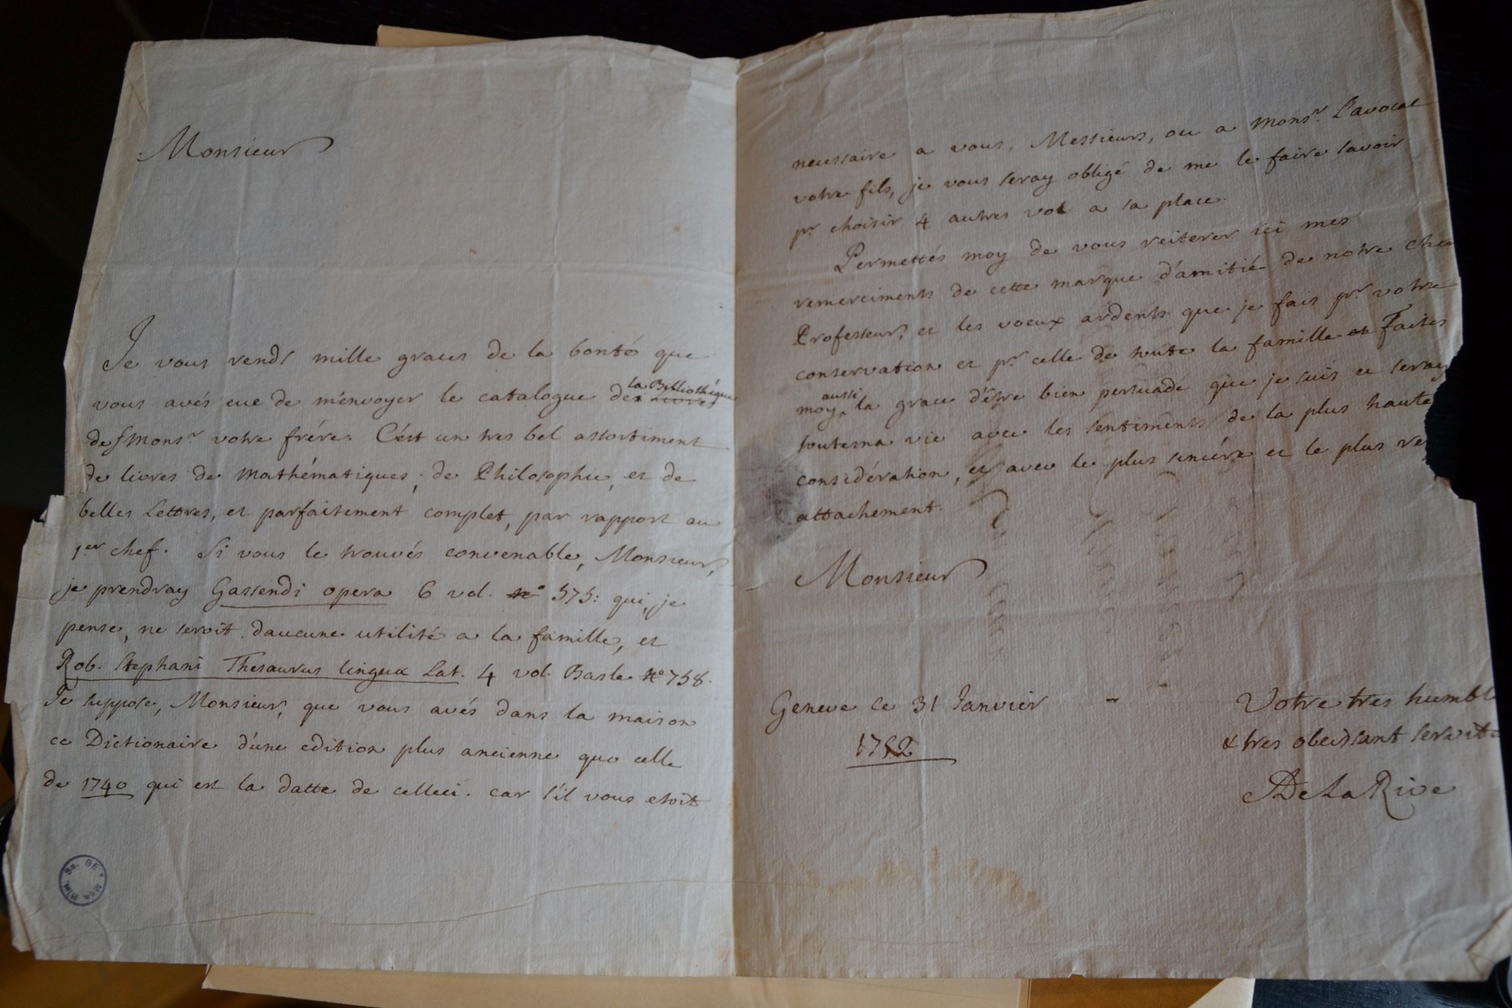 Monsieur
Je vous rends mille graces de la bonté que
vous avés eue de m'envoyer le catalogue de la Bibliothéque
de f Monsr votre frére. C'est un tres bel assortiment
de livres de Mathématiques, de Philosophie, et de
belles Lettres, et parfaitement complet, par rapport au
1er chef. Si vous le trouvés convenable, Monsieur,
je prendray Gassendi opera 6 vol. no 575: qui, je
pense, ne seroit d'aucune utilité a la famille, et
Rob. Stephani Thesaurus linguæ Lat. 4 vol. Basle No 758.
Je suppose, Monsieur, que vous avés dans la maison
ce Dictionaire d'une edition plus ancienne que celle
de 1740 qui est la datte de celleci. car s'il vous etoit
necessaire a vous, Messieurs, ou a Monsr. l'avocat
votre fils, je vous seray obligé de me le faire savoir
pr. choisir 4 autres vol a sa place.
Permettés moy de vous reiterer ici mes
remerciments de cette marque d'amitié de notre cher
Professeur, et les voeux ardents que je fais pr. votre
conservation et pr. celle de toute la famille Faites
moy aussi la grace d'être bien persuadé que je suis et seray
toutema vie avec les sentiments de la plus haute
considération, et avec le plus sincére et le plus
attachement.
Monsieur
Geneve ce 31 Janvier
Votre tres humbl
& tres obeissant servite
De La Rive